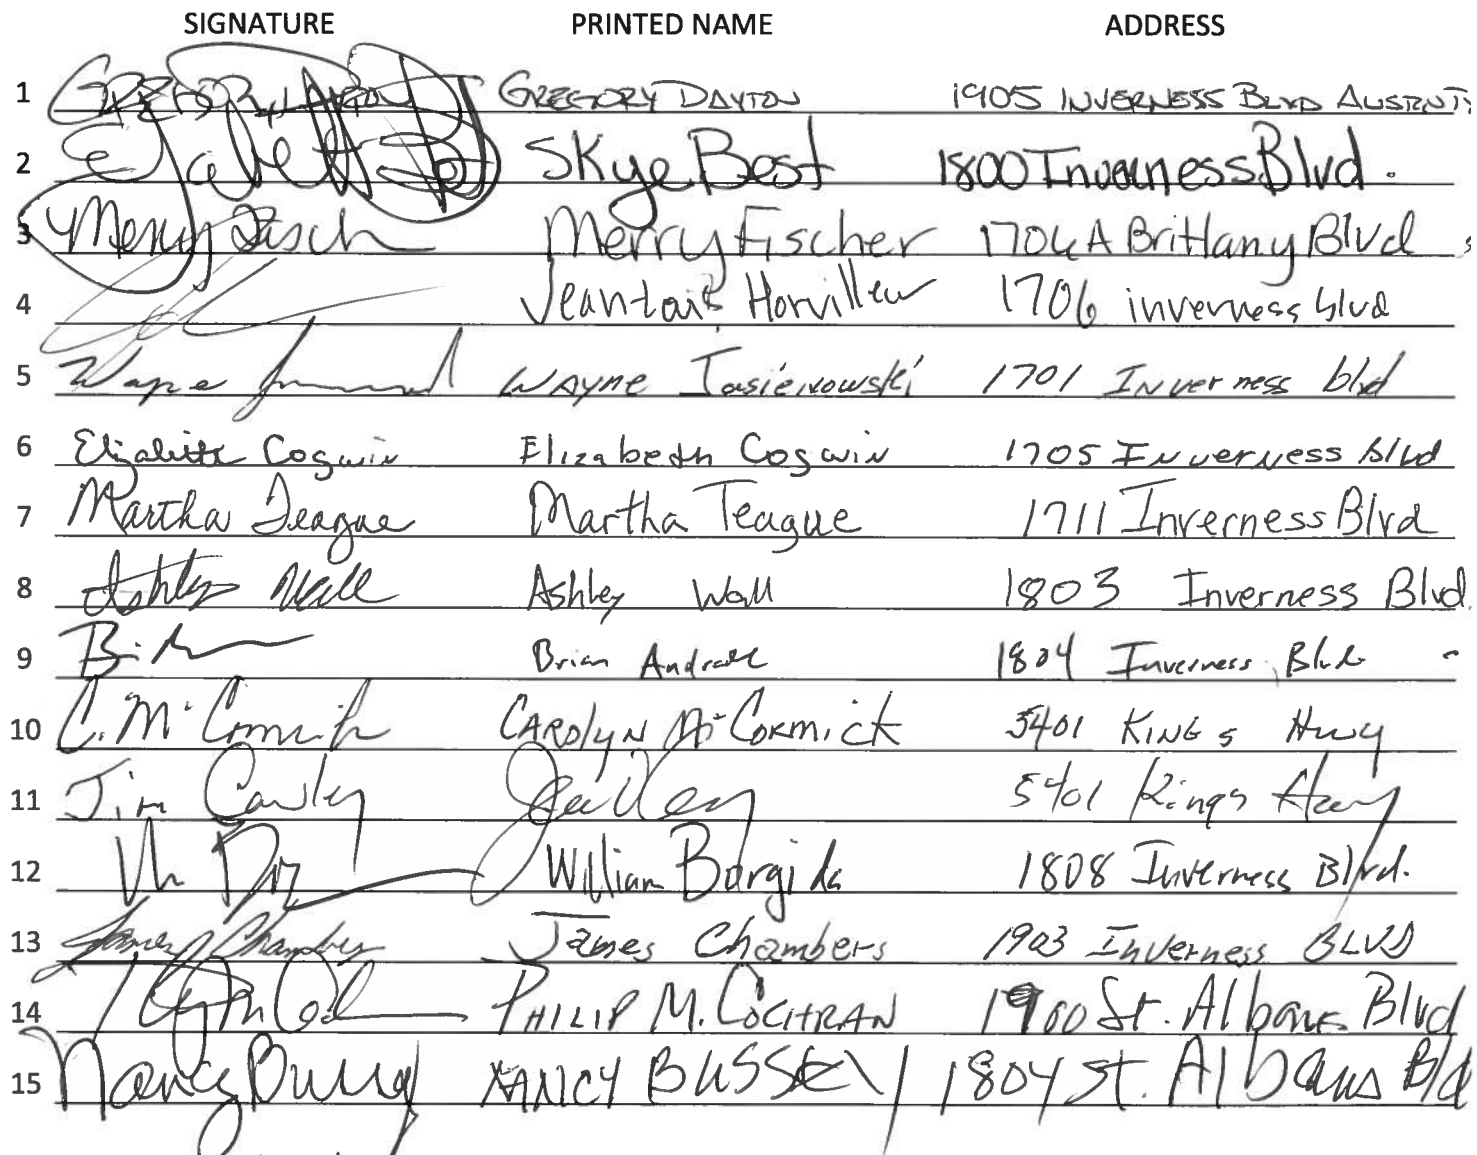 SIGNATURE PRINTED NAME ADDRESS
1 GREGORY DAYTON 1905 INVERNESS BLVD AUSTIN TX
2 Skye Best 1800 Inverness Blvd.
3 Merry Fisch Merry Fischer 1706A Brittany Blvd
4 1706 inverness blvd
5 Wayne WAYNE 1701 Inverness blvd
6 Elizabeth Cogwin Elizabeth Cogwin 1705 Inverness Blvd
7 Martha Teague Martha Teague 1711 Inverness Blvd
8 Ashley Wall Ashley Wall 1803 Inverness Blvd.
9 Brian 1804 Inverness Blvd
10 C. McCormick CAROLYN McCORMICK 5401 KINGS Hwy
11 Jim Cawley 5401 Kings Hwy
12 William Borgida 1808 Inverness Blvd.
13 James Chambers James Chambers 1903 Inverness BLVD
14 PHILIP M. COCHRAN 1900 St. Albans Blvd
15 Nancy Bussey NANCY BUSSEY 1804 St. Albans Bld